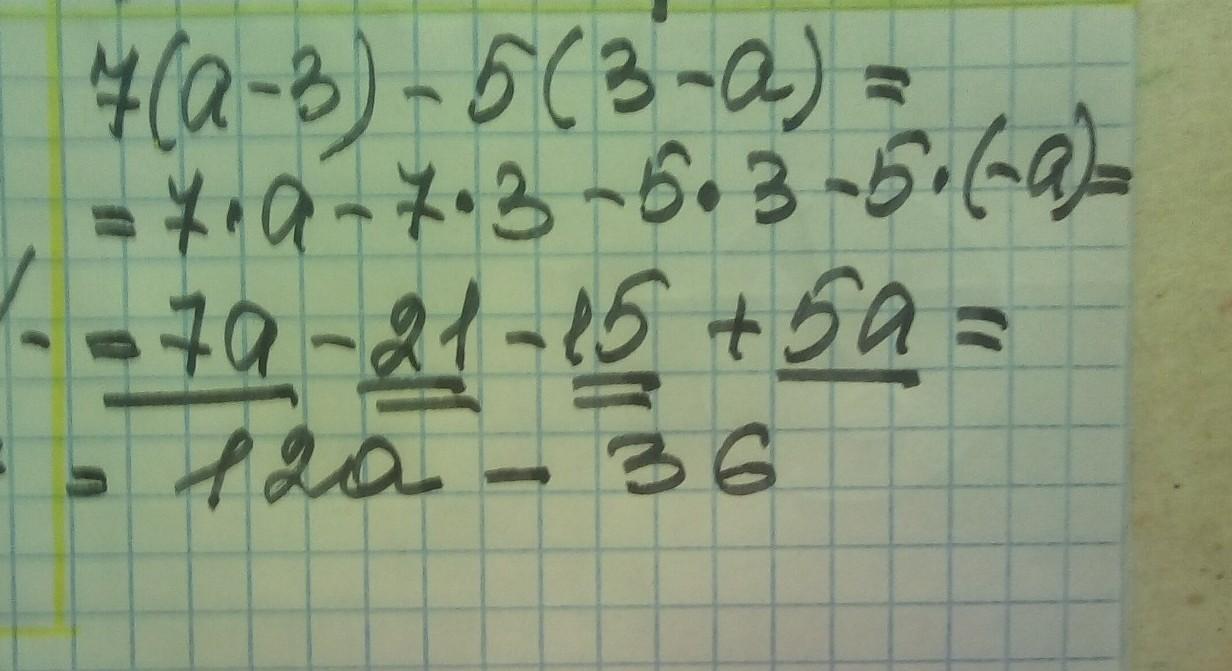 7(a-3) - 5(3-a) =
= 7·a - 7·3 - 5·3 - 5·(-a) =
= 7a - 21 - 15 + 5a =
= 12a - 36